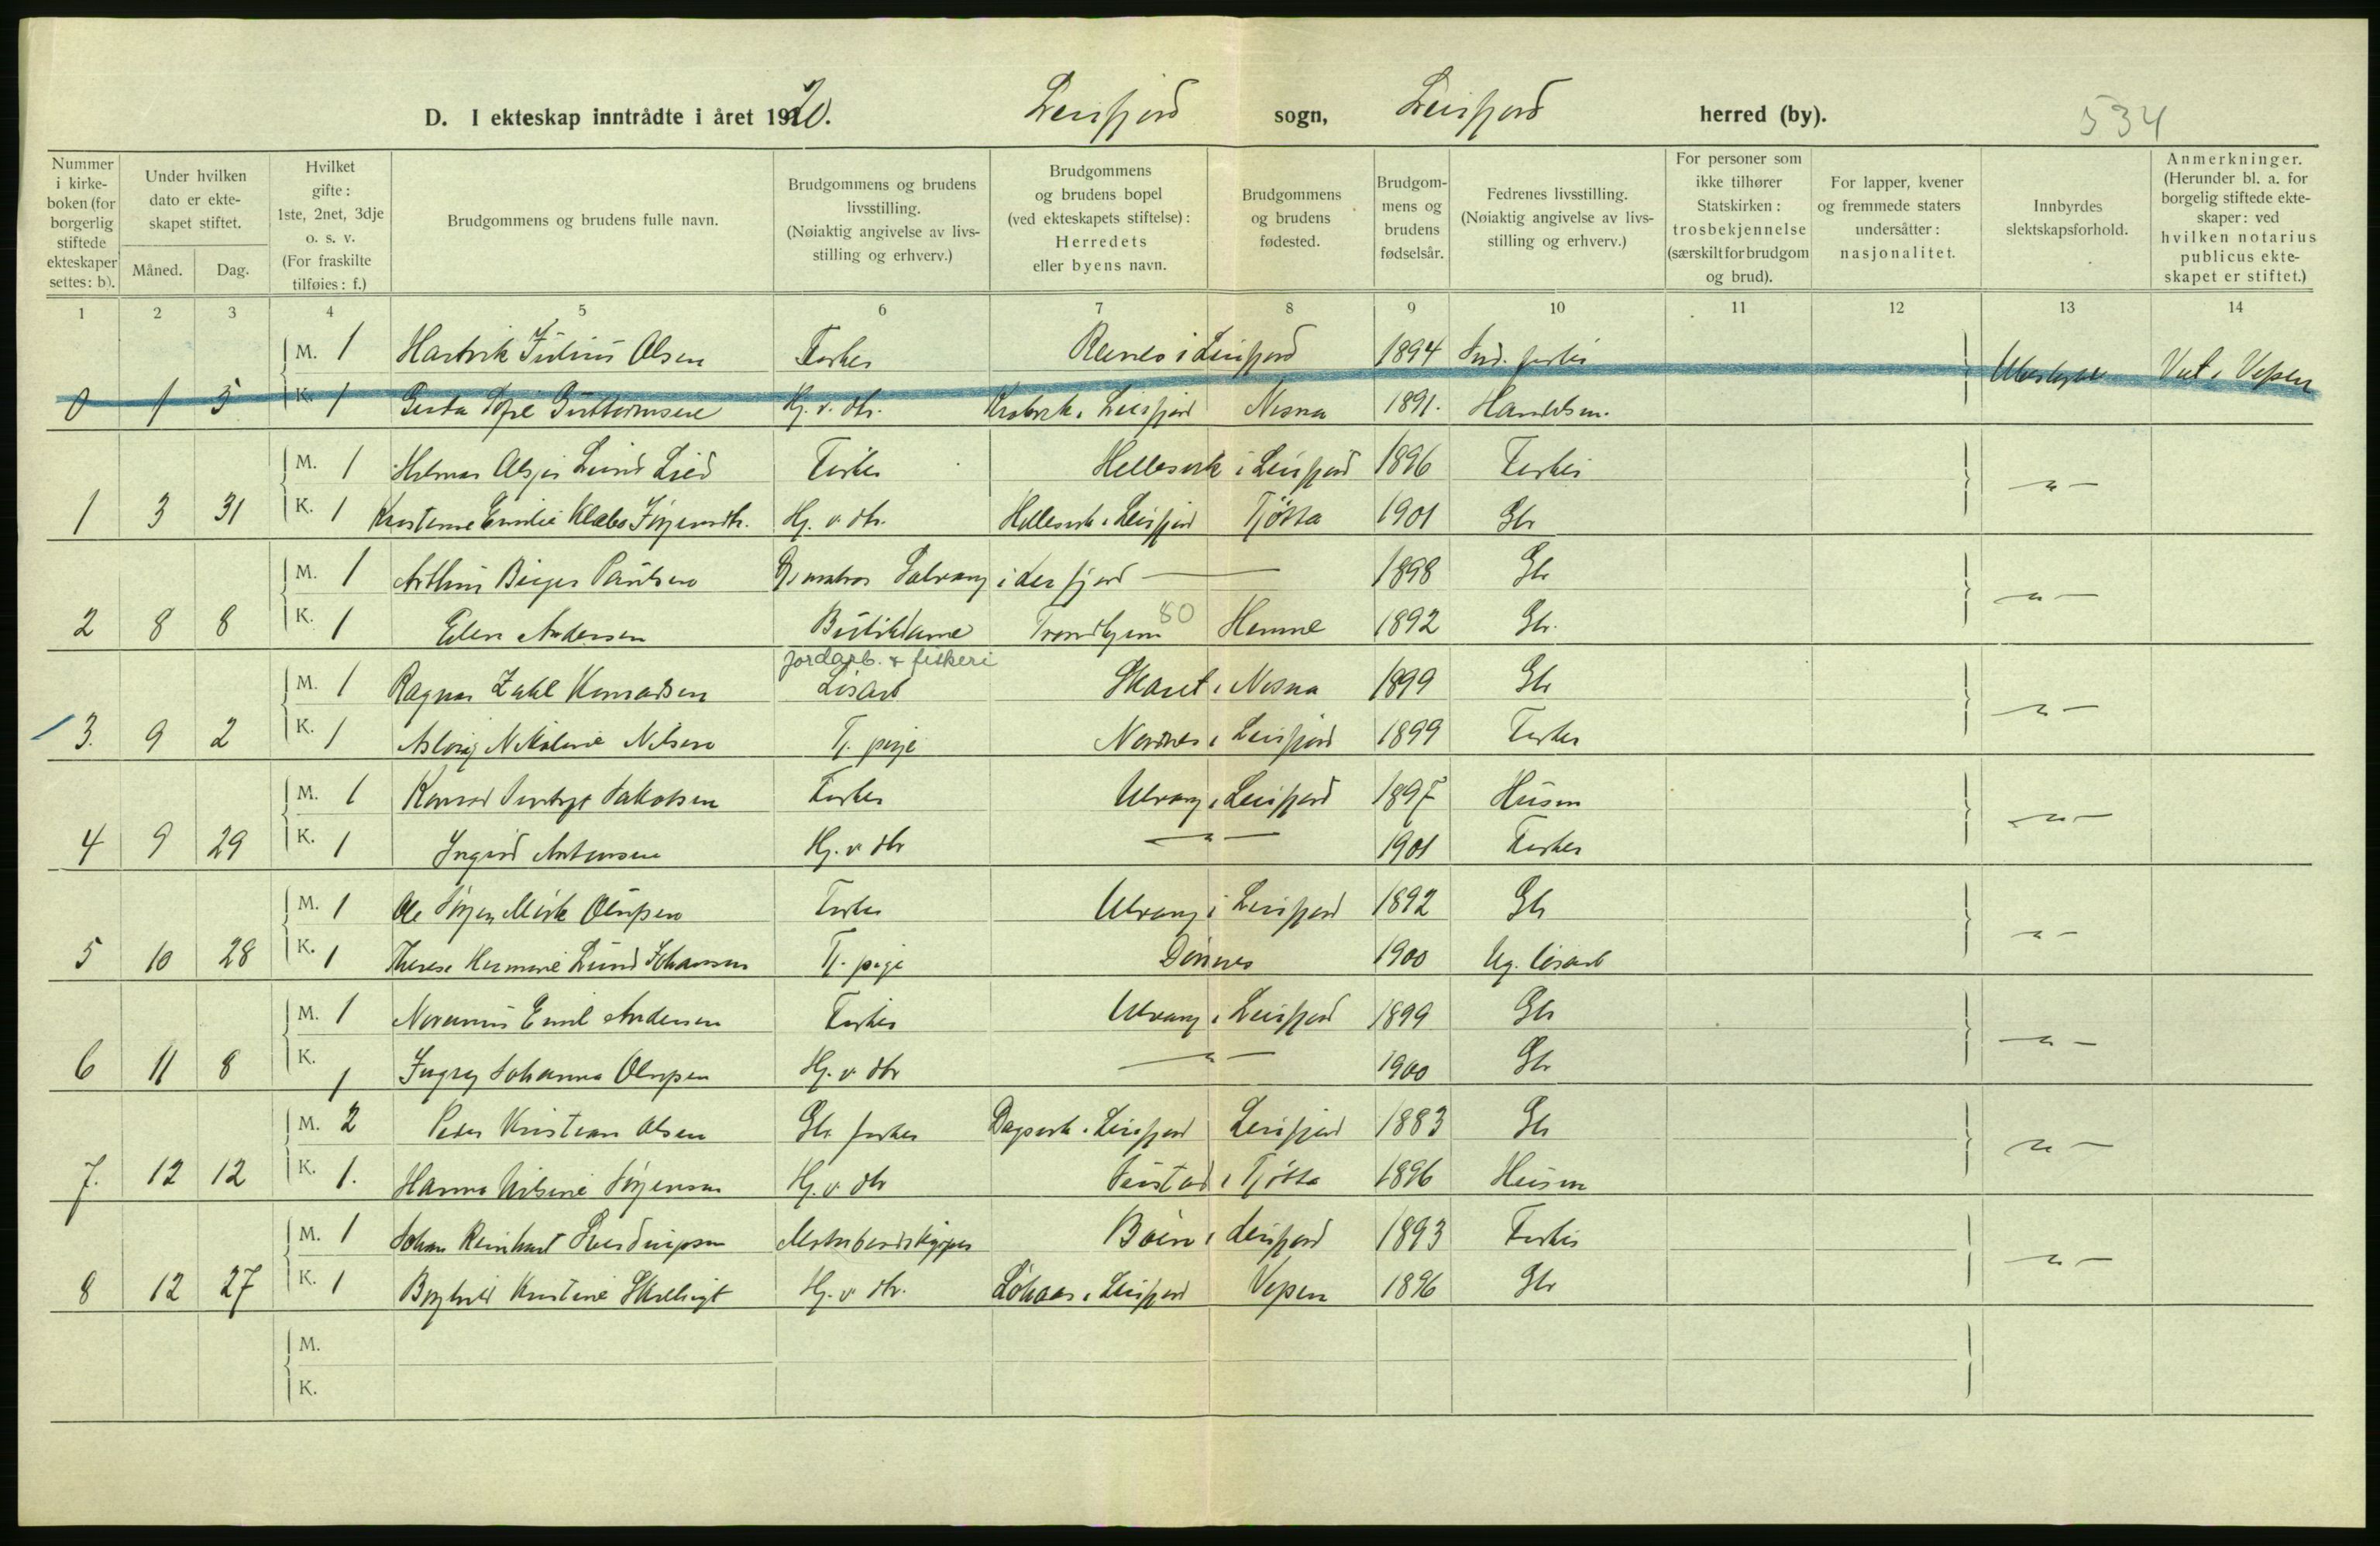 D. I ekteskap inntrådte i året 1920. Leirfjord sogn, Leirfjord herred (by). 534
Nummer i kirke-boken (for borgerlig stiftede ekteskaper settes: b).
Under hvilken dato er ekte-skapet stiftet.
Måned. Dag.
Hvilket gifte: 1ste, 2net, 3dje o. s. v. (For fraskilte tilføies: f.)
Brudgommens og brudens fulle navn.
Brudgommens og brudens livsstilling. (Nøiaktig angivelse av livs-stilling og erhverv.)
Brudgommens og brudens bopel (ved ekteskapets stiftelse): Herredets eller byens navn.
Brudgommens og brudens fødested.
Brudgom-mens og brudens fødselsår.
Fedrenes livsstilling. (Nøiaktig angivelse av livs-stilling og erhverv.)
For personer som ikke tilhører Statskirken: trosbekjennelse (særskilt for brudgom og brud).
For lapper, kvener og fremmede staters undersåtter: nasjonalitet.
Innbyrdes slektskapsforhold.
Anmerkninger. (Herunder bl. a. for borgelig stiftede ekte-skaper: ved hvilken notarius publicus ekte-skapet er stiftet.)
1 2 3 4 5 6 7 8 9 10 11 12 13 14
M. 1 Hartvik Julius Olsen Fisker Reines i Leirfjord 1894 Ind. fisker
0 1 5 K. 1 Gerda Guttormsen Hj. v. dtr. i Leirfjord Nesna 1891. Handelsm. Ubeslægtet Viet i Vefsen
M. 1 Hilmar Lund Lied Fisker Hellesvik i Leirfjord 1896 Fisker
1 3 31 K. 1 Kristine Emilie Klæbo Jörgensdtr. Hj. v. dtr. Hellesvik i Leirfjord Tjötta 1901 Gbr - " -
M. 1 Arthur Birger Paulsen i Leirfjord — 1898 Gbr
2 8 8 K. 1 Ellen Andersen Butikdame Trondhjem 80 Hemne 1892 Gbr. - " -
jordarb. & fiskeri
M. 1 Ragnar Zahl Konradsen Løsarb Skaret i Nesna 1899 Gbr
3. 9 2 K. 1 Aslaug Nikoline Nilsen Tj. pige Nordnes i Leirfjord 1899 Fisker - " -
M. 1 Konrad Jakobsen Fisker Ulvang i Leirfjord 1897 Husm
4 9 29 K. 1 Ingrid Antonsen Hj. v. dtr - " - 1901 Fisker - " -
M. 1 Ole Jörgen Mørk Olufsen Fisker Ulvang i Leirfjord 1892 Gbr
5 10 28 K. 1 Therese Hermine Lund Johansen Tj. pige Dönnes 1900 Ug. løsarb - " -
M. 1 Norumus Emil Andersen Fisker Ulvang i Leirfjord 1899 Gbr
6 11 8 K. 1 Johanna Olufsen Hj. v. dtr - " - 1900 Gbr - " -
M. 2 Peder Kristian Olsen Gbr. fisker Dagsvik i Leirfjord Leirfjord 1883 Gbr
7. 12 12 K. 1. Hanna Nilsine Jörgensen Hj. v. dtr i Tjötta 1896 Husm - " -
M. 1 Johan Reinhart i Leirfjord 1893 Fisker
8 12 27 K. 1 Borghild Kristine Hj. v. dtr. i Leirfjord Vefsen 1896 Gbr - " -
M.
K.